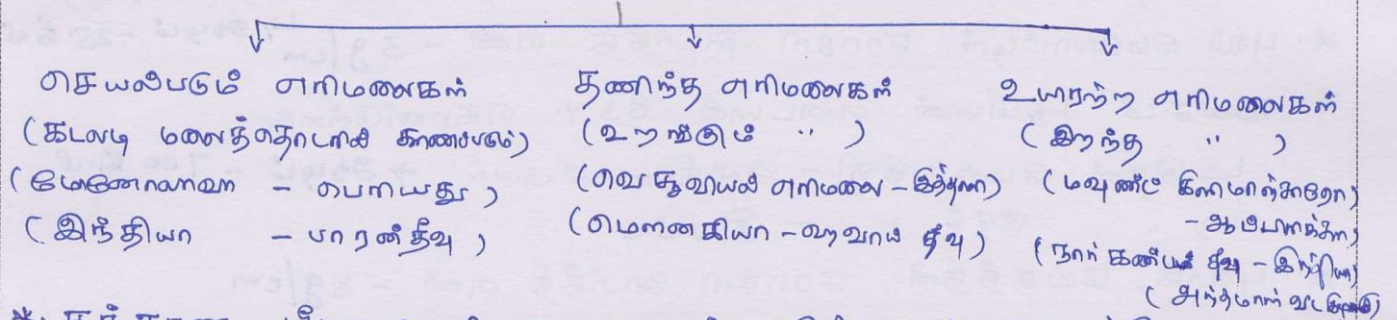 செயல்படும் எரிமலைகள்
(கடலடி மலைத்தொடரில் காணப்படும்)
(மோனோலாவா - பெரியது)
(இந்தியா - பாரன்தீவு)
தணிந்த எரிமலைகள்
(உறங்கும் ")
(வெசூவியஸ் எரிமலை - இத்தாலி)
(மௌனகியா - ஹவாய் தீவு)
உயிரற்ற எரிமலைகள்
(இறந்த ")
(மவுண்ட் கிளிமாஞ்சரோ)
- ஆப்பிரிக்கா)
(நார்கண்டம் தீவு - இந்தியா)
(அந்தமான் வடகிழக்கு)